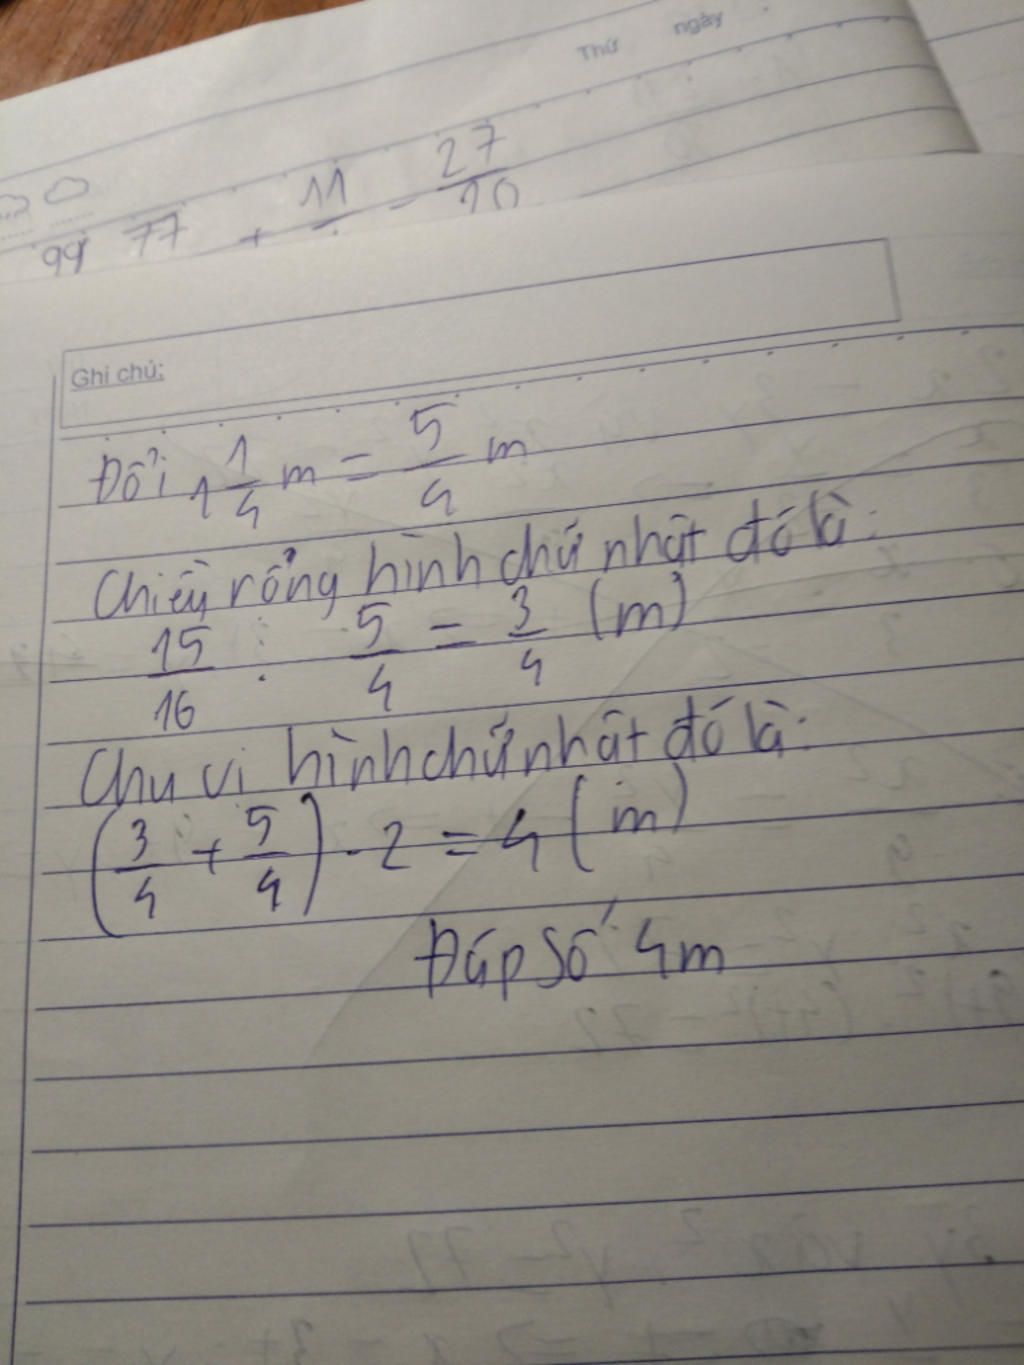 Thứ ngày
99 77 + 11 - 27/10
Ghi chú:
Đổi 1 1/4 m = 5/4 m
Chiều rổng hình chứ nhật đó là:
15/16 : 5/4 = 3/4 (m)
Chu vi hình chứ nhật đó là:
(3/4 + 5/4) . 2 = 4 (m)
Đáp Số 4m